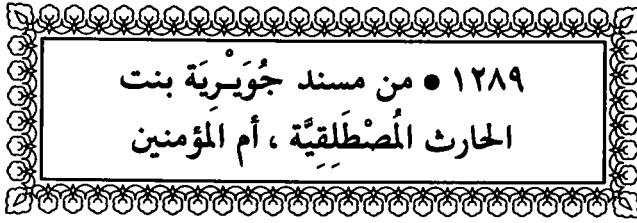 ١٢٨٩ • من مسند جُوَيْرِيَة بنت
الحارث المُصْطَلِقِيَّة ، أم المؤمنين